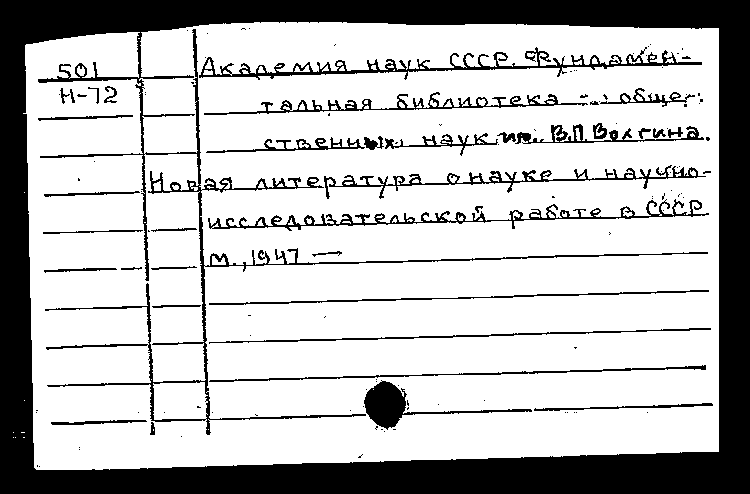 501 Академия наук СССР. Фундамен-
Н-72 тальная библиотека обще-
ственных наук им. В.П. Волгина.
Новая литература о науке и научно-
исследовательской работе в СССР
М., 1947 —